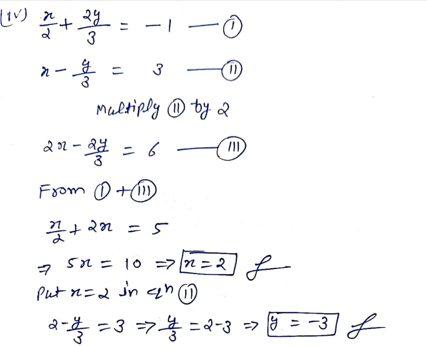 (iv) x/2 + 2y/3 = -1 — (I)
x - y/3 = 3 — (II)
Multiply (II) by 2
2x - 2y/3 = 6 — (III)
From (I) + (III)
x/2 + 2x = 5
⇒ 5x = 10 ⇒ x = 2
Put x = 2 in qn (II)
2 - y/3 = 3 ⇒ y/3 = 2 - 3 ⇒ y = -3